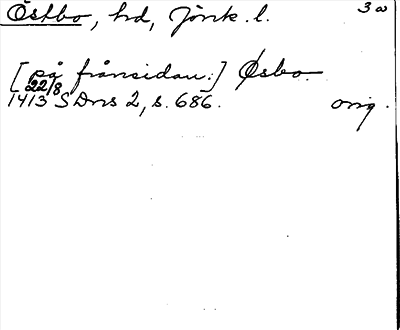 Östbo, hd, Jönk. l. 3 w
[på frånsidan:] Øsbo.
22/8
1413 SDns 2, s. 686. orig.